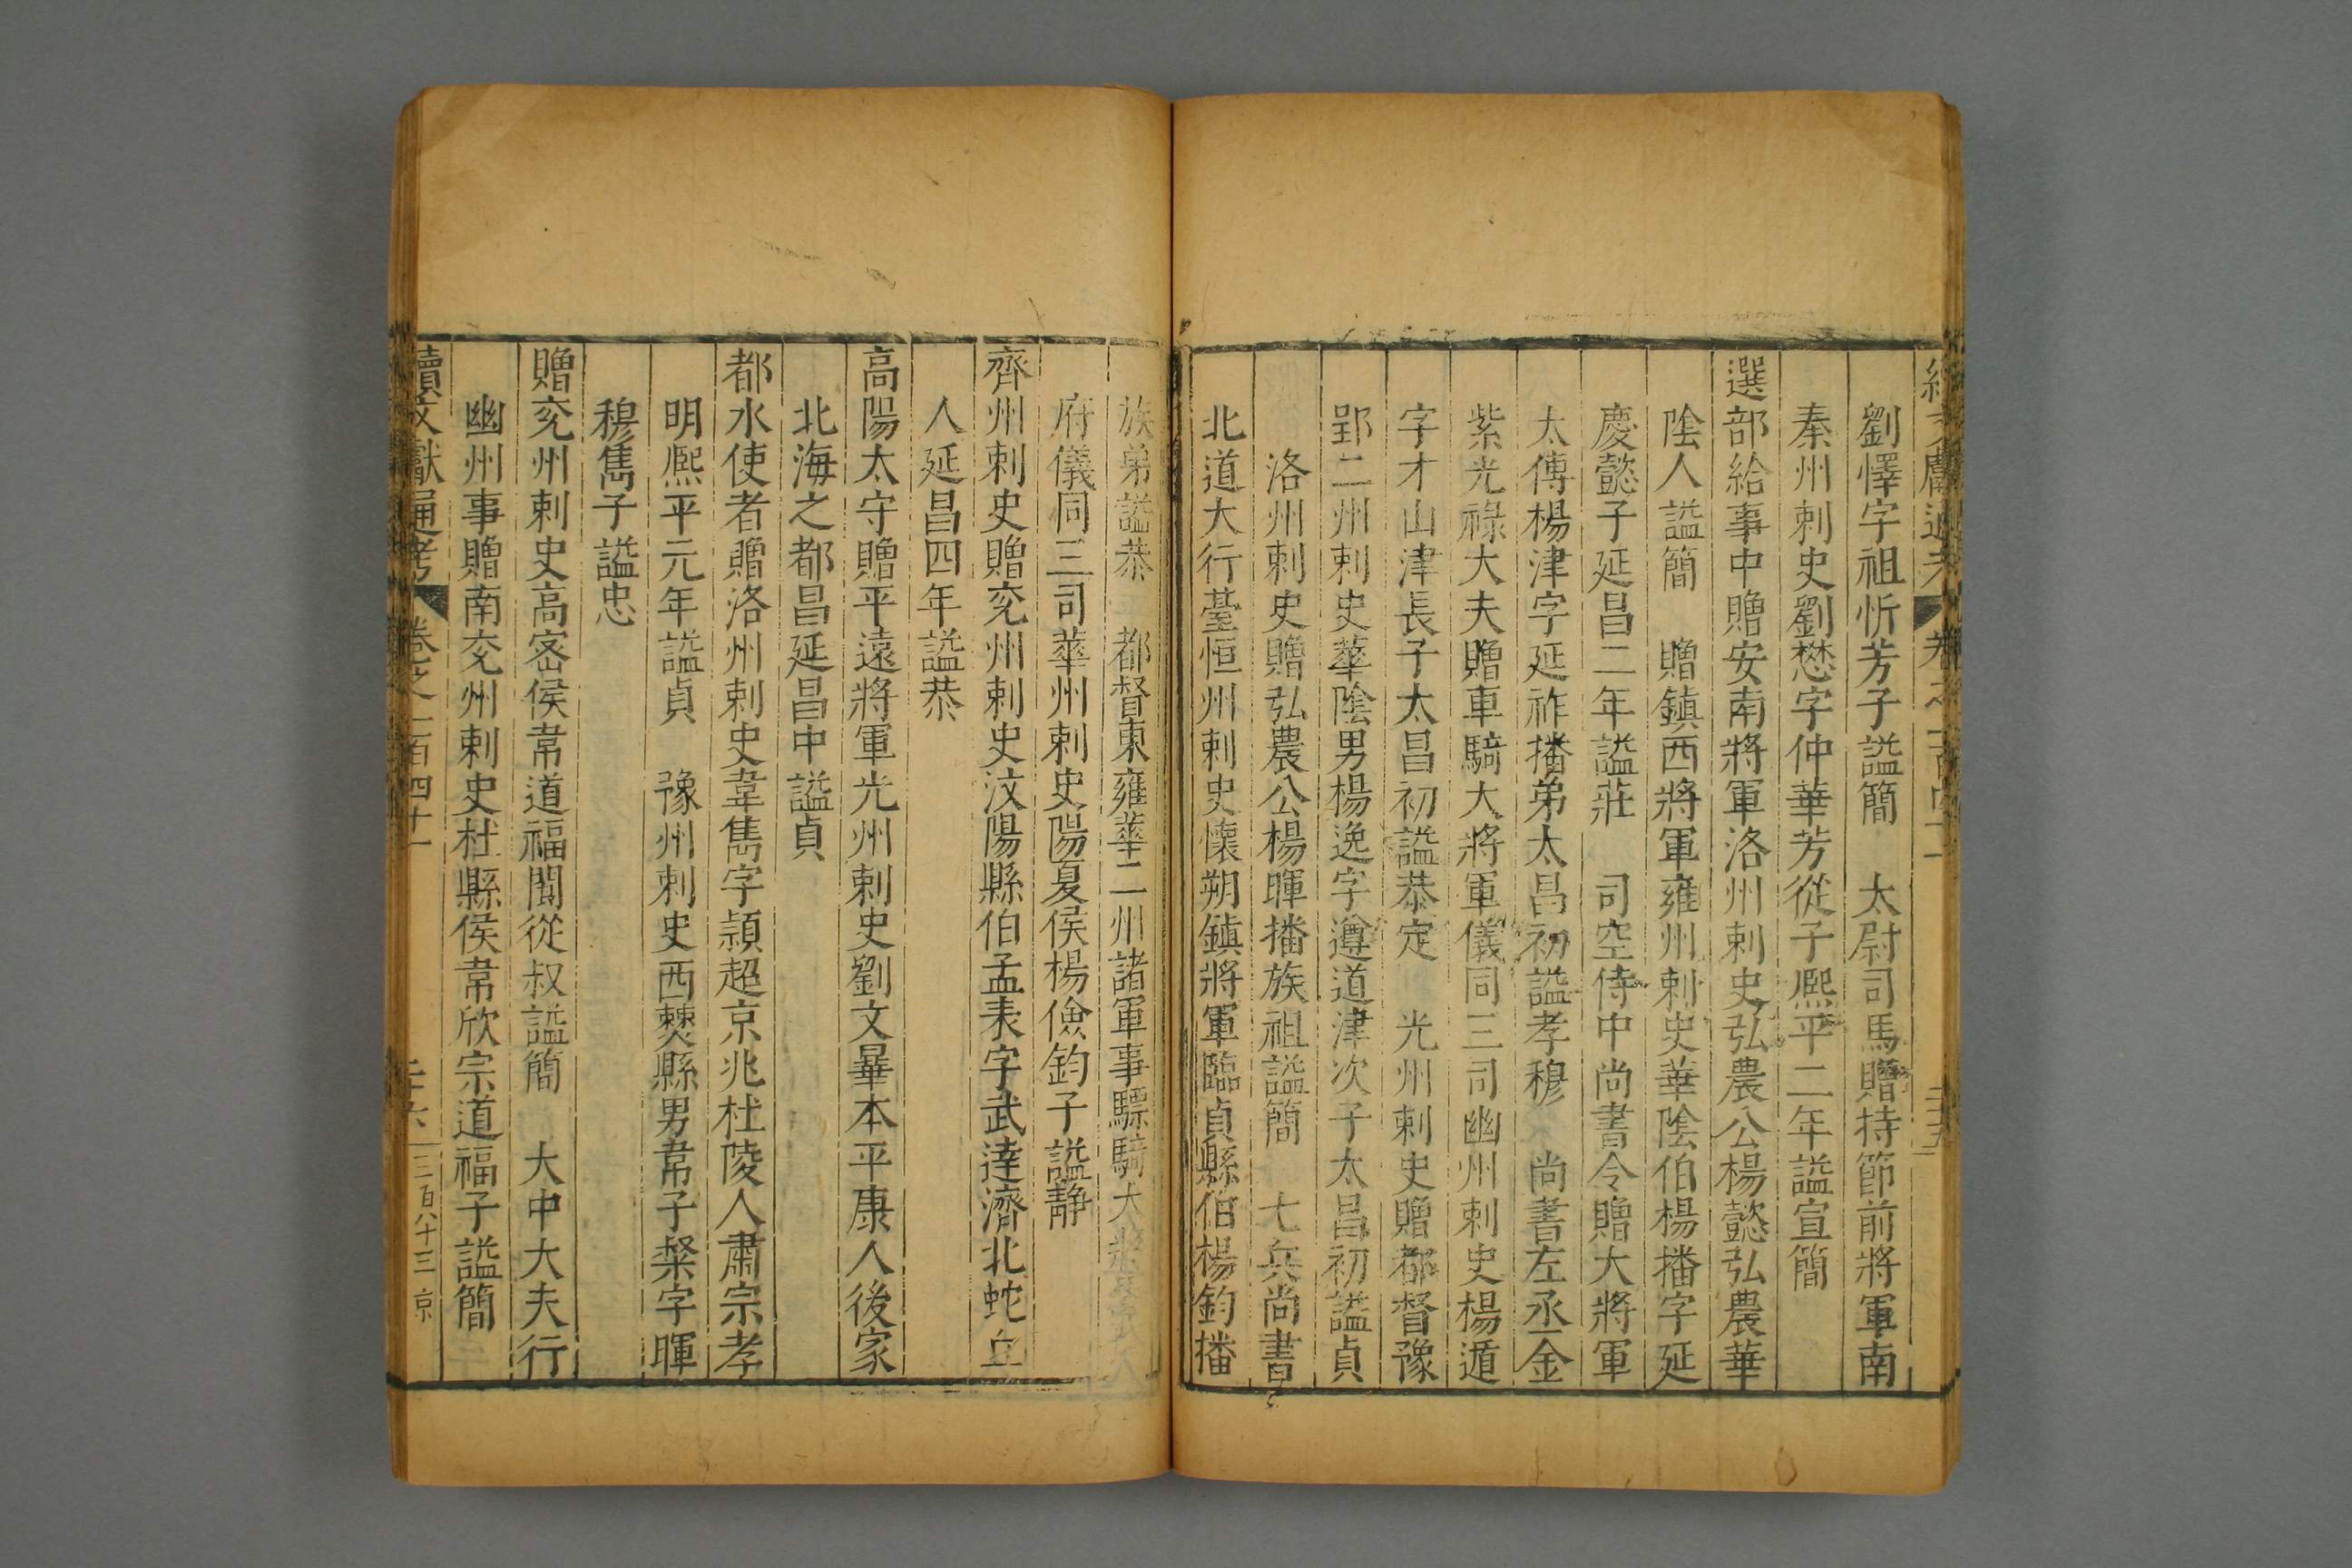 劉懌字祖忻芳子謚簡　太尉司馬贈持節前將軍南
秦州刺史劉懋字仲華芳從子熙平二年謚宣簡
選部給事中贈安南將軍洛州刺史弘農公楊懿弘農華
陰人謚簡　贈鎮西將軍雍州刺史華陰伯楊播字延
慶懿子延昌二年謚莊　司空侍中尚書令贈大將軍
太傅楊津字延祚播弟太昌初謚孝穆　尚書左丞金
紫光祿大夫贈車騎大將軍儀同三司幽州刺史楊遁
字才山津長子太昌初謚恭定　光州刺史贈都督豫
郢二州刺史華陰男楊逸字遵道津次子太昌初謚貞
洛州刺史贈弘農公楊暉播族祖謚簡　七兵尚書
北道大行臺恒州刺史懷朔鎮將軍臨貞縣伯楊鈞播
族弟謚恭　都督東雍華二州諸軍事驃騎大將軍
府儀同三司華州刺史陽夏侯楊儉鈞子謚靜
齊州刺史贈兗州刺史汶陽縣伯孟表字武達濟北蛇丘
人延昌四年謚恭
高陽太守贈平遠將軍光州刺史劉文曄本平康人後家
北海之都昌延昌中謚貞
都水使者贈洛州刺史韋雋字頴超京兆杜陵人肅宗孝
明熙平元年謚貞　豫州刺史西僰縣男韋子粲字暉
穆雋子謚忠
贈兗州刺史高密侯韋道福閬從叔謚簡　大中大夫行
幽州事贈南兗州刺史杜縣侯韋欣宗道福子謚簡
續文獻通考　卷之一百四十一　二十六　三百八十三　京